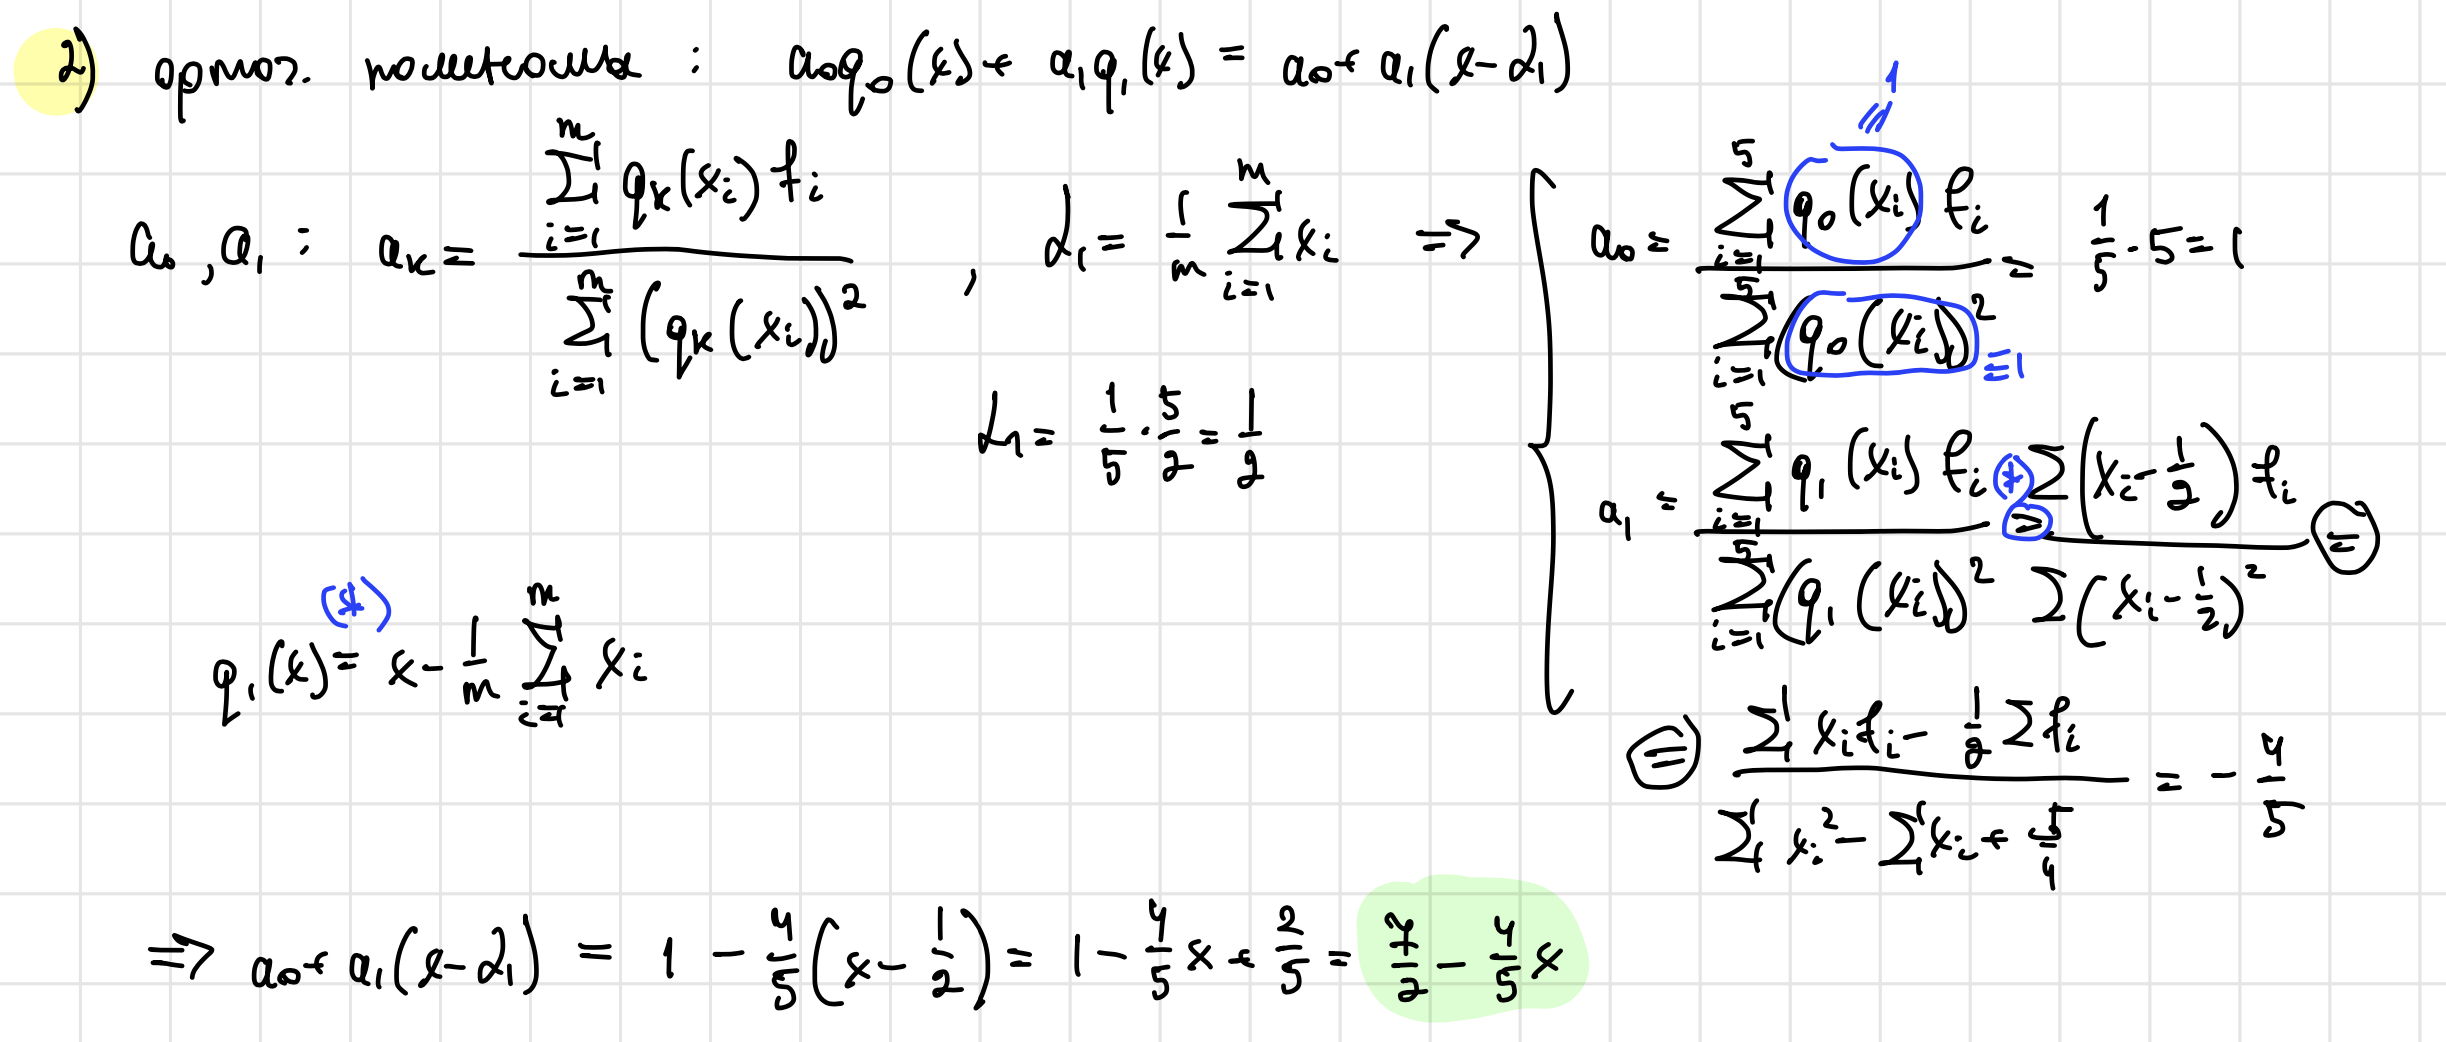 2) ортог. полиномы : a₀q₀(x) + a₁q₁(x) = a₀ + a₁(x-α₁)
a₀, a₁ : aₖ = \frac{\sum_{i=1}^{m} qₖ(xᵢ) fᵢ}{\sum_{i=1}^{m} (qₖ(xᵢ))²} , α₁ = \frac{1}{m} \sum_{i=1}^{m} xᵢ ⇒
α₁ = \frac{1}{5} · \frac{5}{2} = \frac{1}{2}
a₀ = \frac{\sum_{i=1}^{5} q₀(xᵢ) fᵢ}{\sum_{i=1}^{5} (q₀(xᵢ))²} = \frac{1}{5} · 5 = 1
1
≡1
a₁ = \frac{\sum_{i=1}^{5} q₁(xᵢ) fᵢ}{\sum_{i=1}^{5} (q₁(xᵢ))²} (*) = \frac{\sum (xᵢ - \frac{1}{2}) fᵢ}{\sum (xᵢ - \frac{1}{2})²} =
= \frac{\sum xᵢfᵢ - \frac{1}{2} \sum fᵢ}{\sum xᵢ² - \sum xᵢ + \frac{5}{4}} = - \frac{4}{5}
(*)
q₁(x) = x - \frac{1}{m} \sum_{i=1}^{m} xᵢ
⇒ a₀ + a₁(x-α₁) = 1 - \frac{4}{5}(x - \frac{1}{2}) = 1 - \frac{4}{5}x + \frac{2}{5} = \frac{7}{2} - \frac{4}{5}x